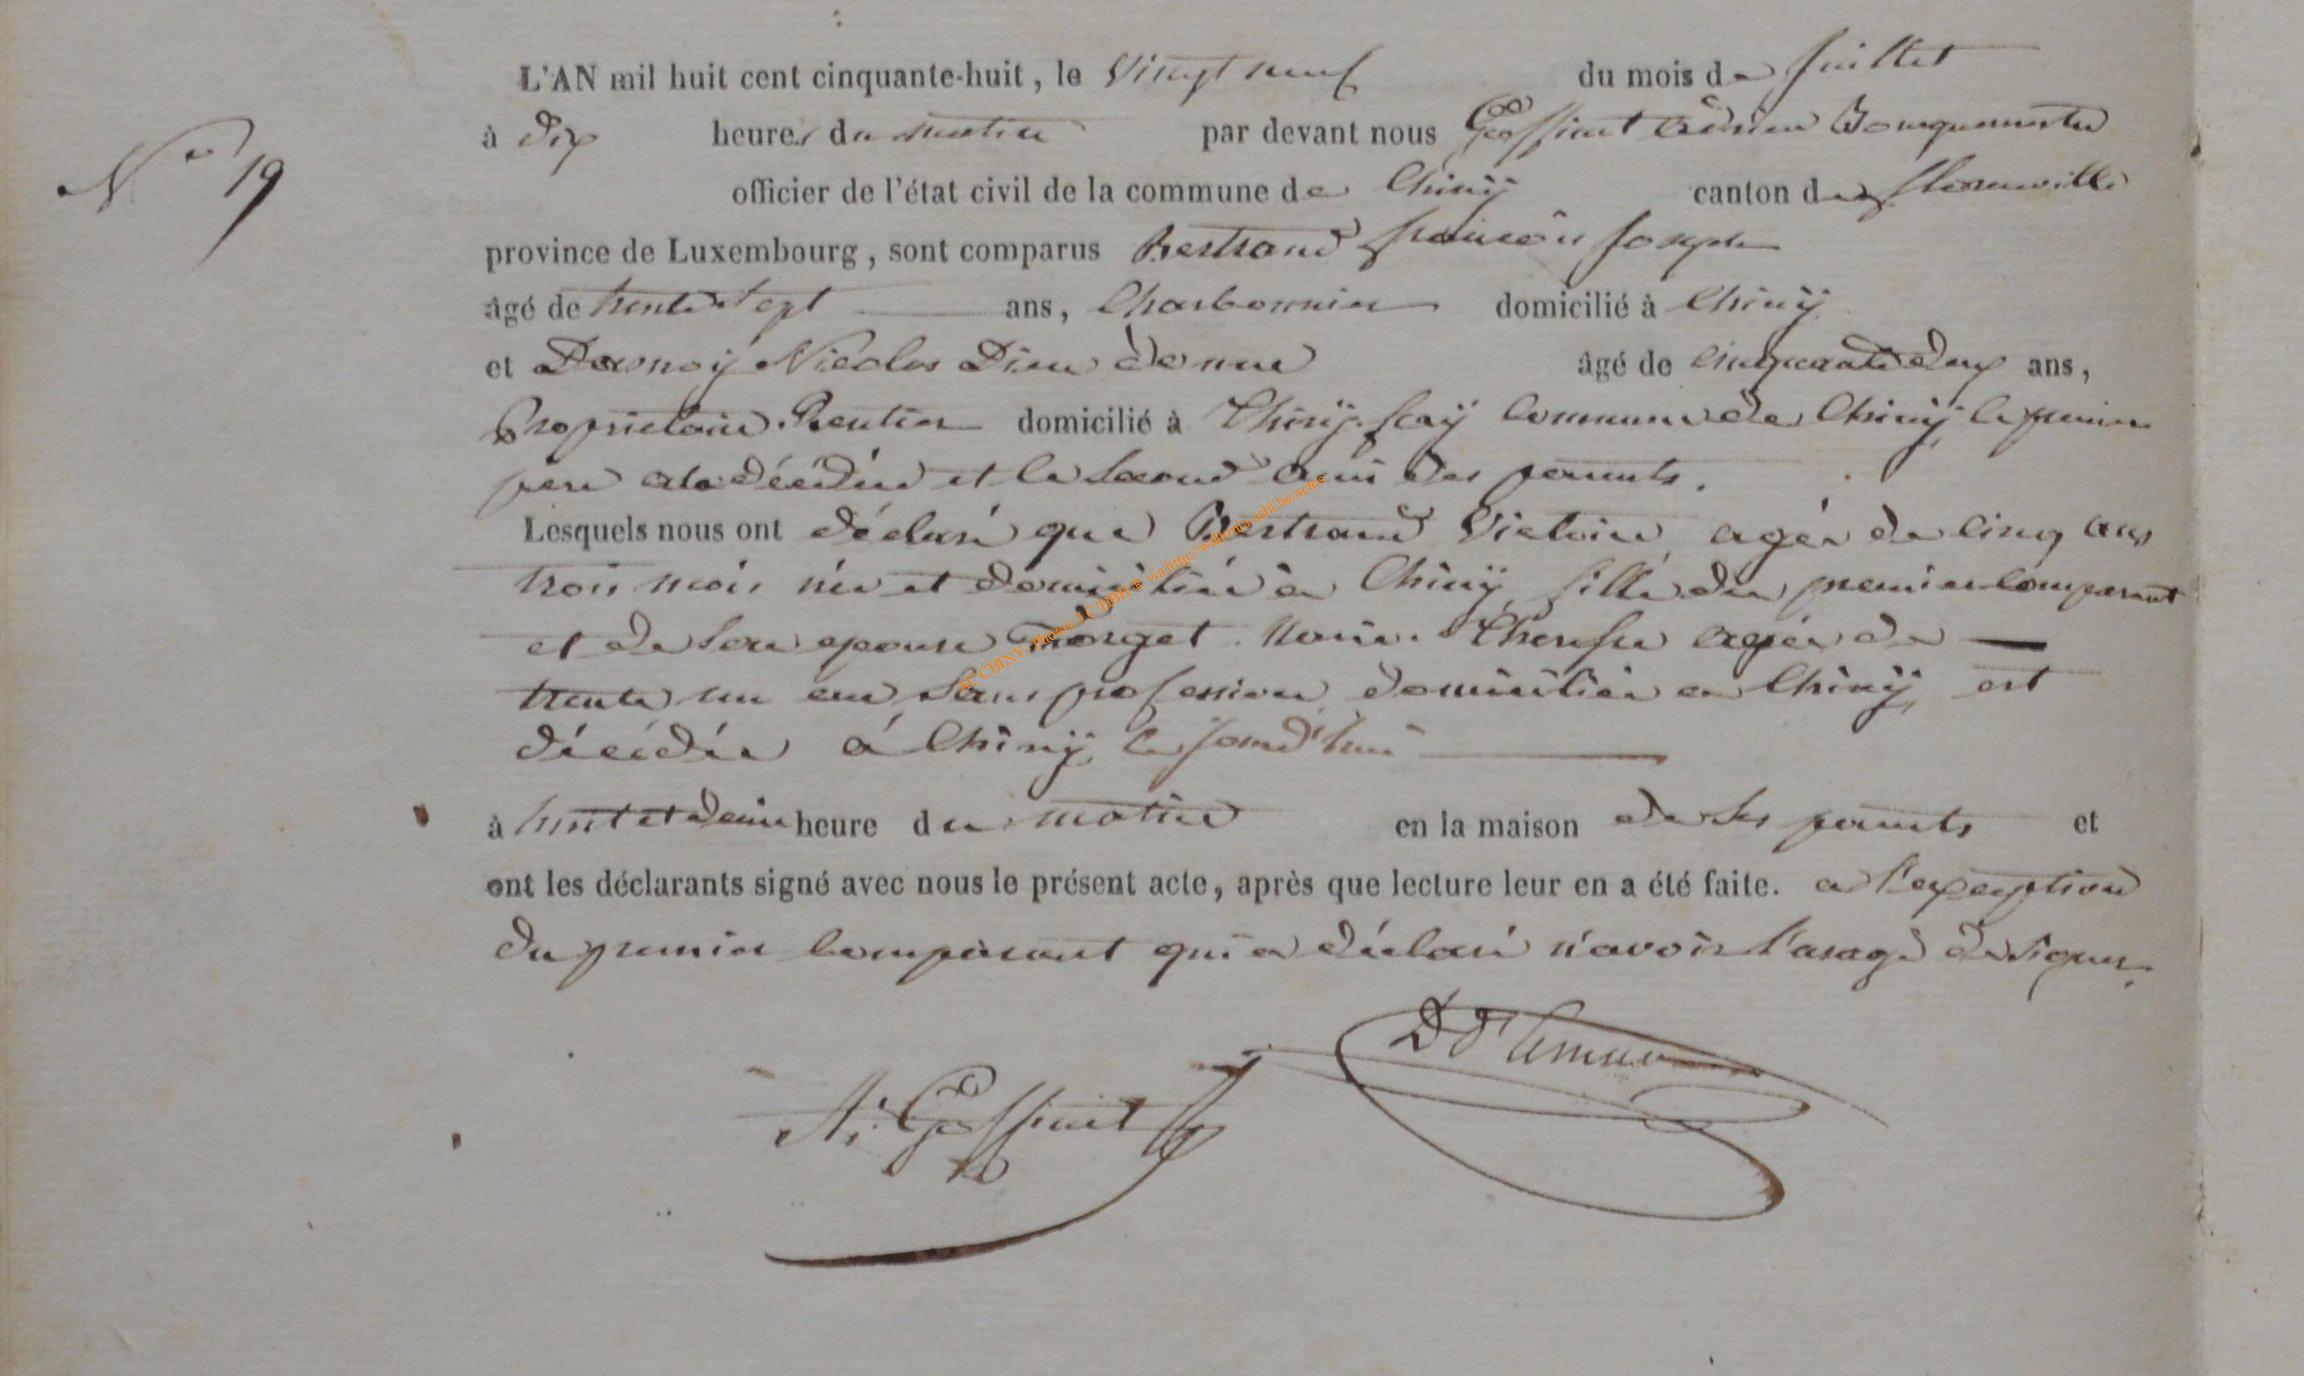 L'AN mil huit cent cinquante-huit, le Vingt neuf du mois de Juillet
à dix heures du matin par devant nous Goffinet Adrien Bourguemestre
N° 19
officier de l'état civil de la commune de Chinÿ canton de Florenville
province de Luxembourg, sont comparus Bertrand françois Joseph
âgé de trente sept ans, Charbonnier domicilié à Chinÿ
et Nicolas Dieu donne âgé de cinquante deux ans,
Proprietaire Rentier domicilié à commune de Chinÿ, le premier
pere de la décédée et le Second ami des parents.
Lesquels nous ont déclaré que Bertrand Victoire agée de cinq ans
trois mois née et domiciliée a Chinÿ fille du premier comparant
et de son epouse Forget Marie Therese agée de
trente un an Sans profession domiciliée a Chinÿ, est
décédée á Chinÿ, le jourd'hui
à huit et demie heure du matin en la maison de Ses parents et
ont les déclarants signé avec nous le présent acte, après que lecture leur en a été faite. a l'exception
du premier comparant qui a déclaré n'avoir l'usage de Signer.
A. Goffinet